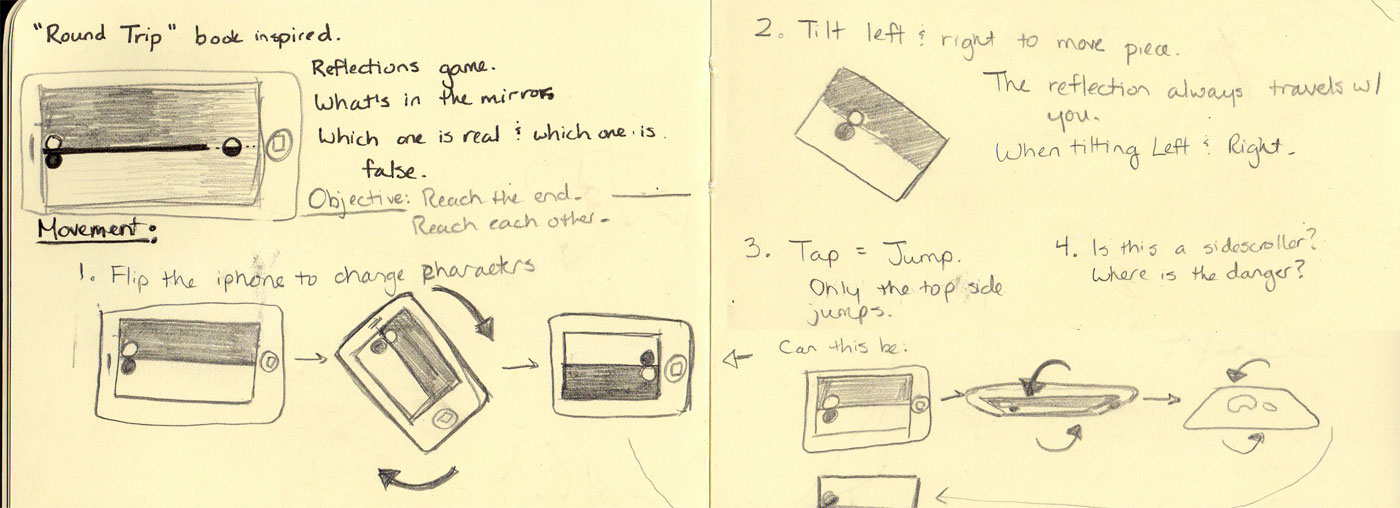 "Round Trip" book inspired.
Reflections game.
What's in the mirrors
Which one is real & which one is
false.
Objective: Reach the end.
Reach each other.
Movement:
1. Flip the iphone to change characters
2. Tilt left & right to move piece.
The reflection always travels w/
you.
When tilting Left & Right.
3. Tap = Jump.
Only the top side
jumps.
4. Is this a sidescroller?
Where is the danger?
Can this be: